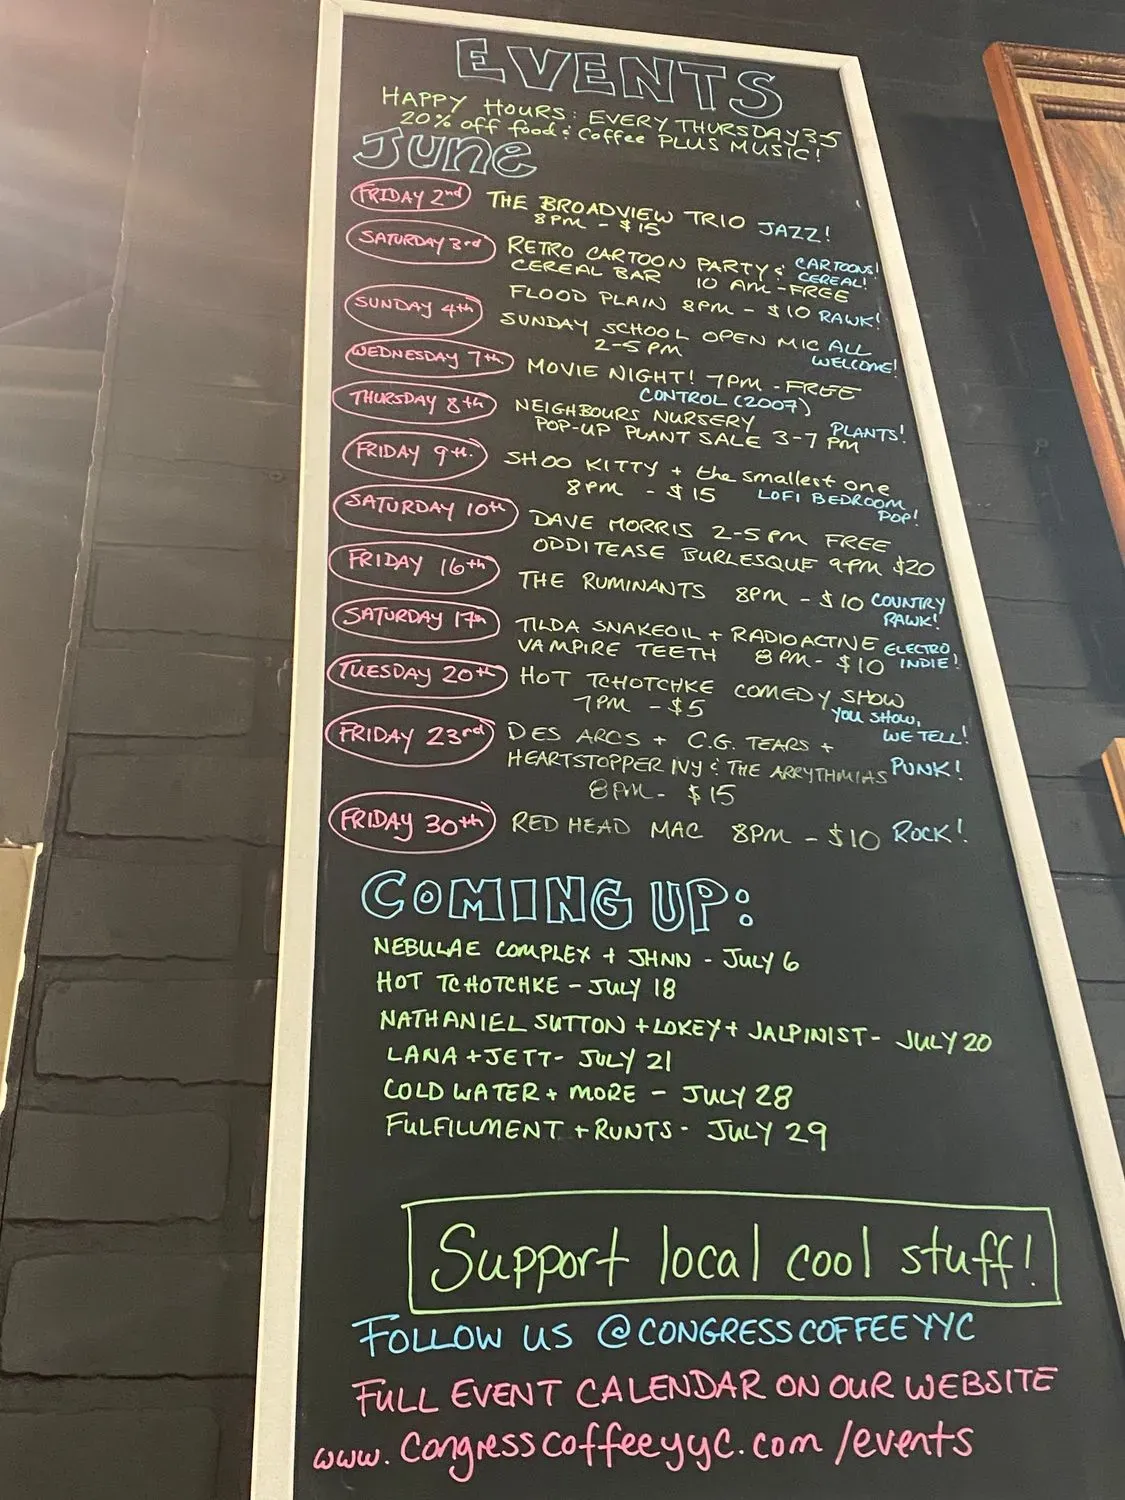 EVENTS
HAPPY HOURS: EVERY THURSDAY 3-5
20% off food & coffee PLUS MUSIC!
June
FRIDAY 2nd THE BROADVIEW TRIO JAZZ!
8PM - $15
SATURDAY 3rd RETRO CARTOON PARTY & CARTOONS!
CEREAL BAR 10 AM - FREE CEREAL!
FLOOD PLAIN 8PM - $10 RAWK!
SUNDAY 4th SUNDAY SCHOOL OPEN MIC ALL
2-5PM WELCOME!
WEDNESDAY 7th MOVIE NIGHT! 7PM - FREE
CONTROL (2007)
THURSDAY 8th NEIGHBOURS NURSERY PLANTS!
POP-UP PLANT SALE 3-7 PM
FRIDAY 9th. SHOO KITTY + the smallest one
8PM - $15 LOFI BEDROOM
POP!
SATURDAY 10th DAVE MORRIS 2-5PM FREE
ODDITEASE BURLESQUE 9PM $20
FRIDAY 16th THE RUMINANTS 8PM - $10 COUNTRY
RAWK!
SATURDAY 17th TILDA SNAKEOIL + RADIOACTIVE ELECTRO
VAMPIRE TEETH 8PM - $10 INDIE!
TUESDAY 20th HOT TCHOTCHKE COMEDY SHOW
7PM - $5 YOU SHOW,
WE TELL!
FRIDAY 23rd DES ARCS + C.G. TEARS +
HEARTSTOPPER IVY & THE ARRYTHMIAS PUNK!
8PM - $15
FRIDAY 30th RED HEAD MAC 8PM - $10 ROCK!
COMING UP:
NEBULAE COMPLEX + JHNN - JULY 6
HOT TCHOTCHKE - JULY 18
NATHANIEL SUTTON + LOKEY + JALPINIST - JULY 20
LANA + JETT - JULY 21
COLD WATER + MORE - JULY 28
FULFILLMENT + RUNTS - JULY 29
Support local cool stuff!
FOLLOW US @CONGRESSCOFFEEYYC
FULL EVENT CALENDAR ON OUR WEBSITE
www.congresscoffeeyyc.com/events